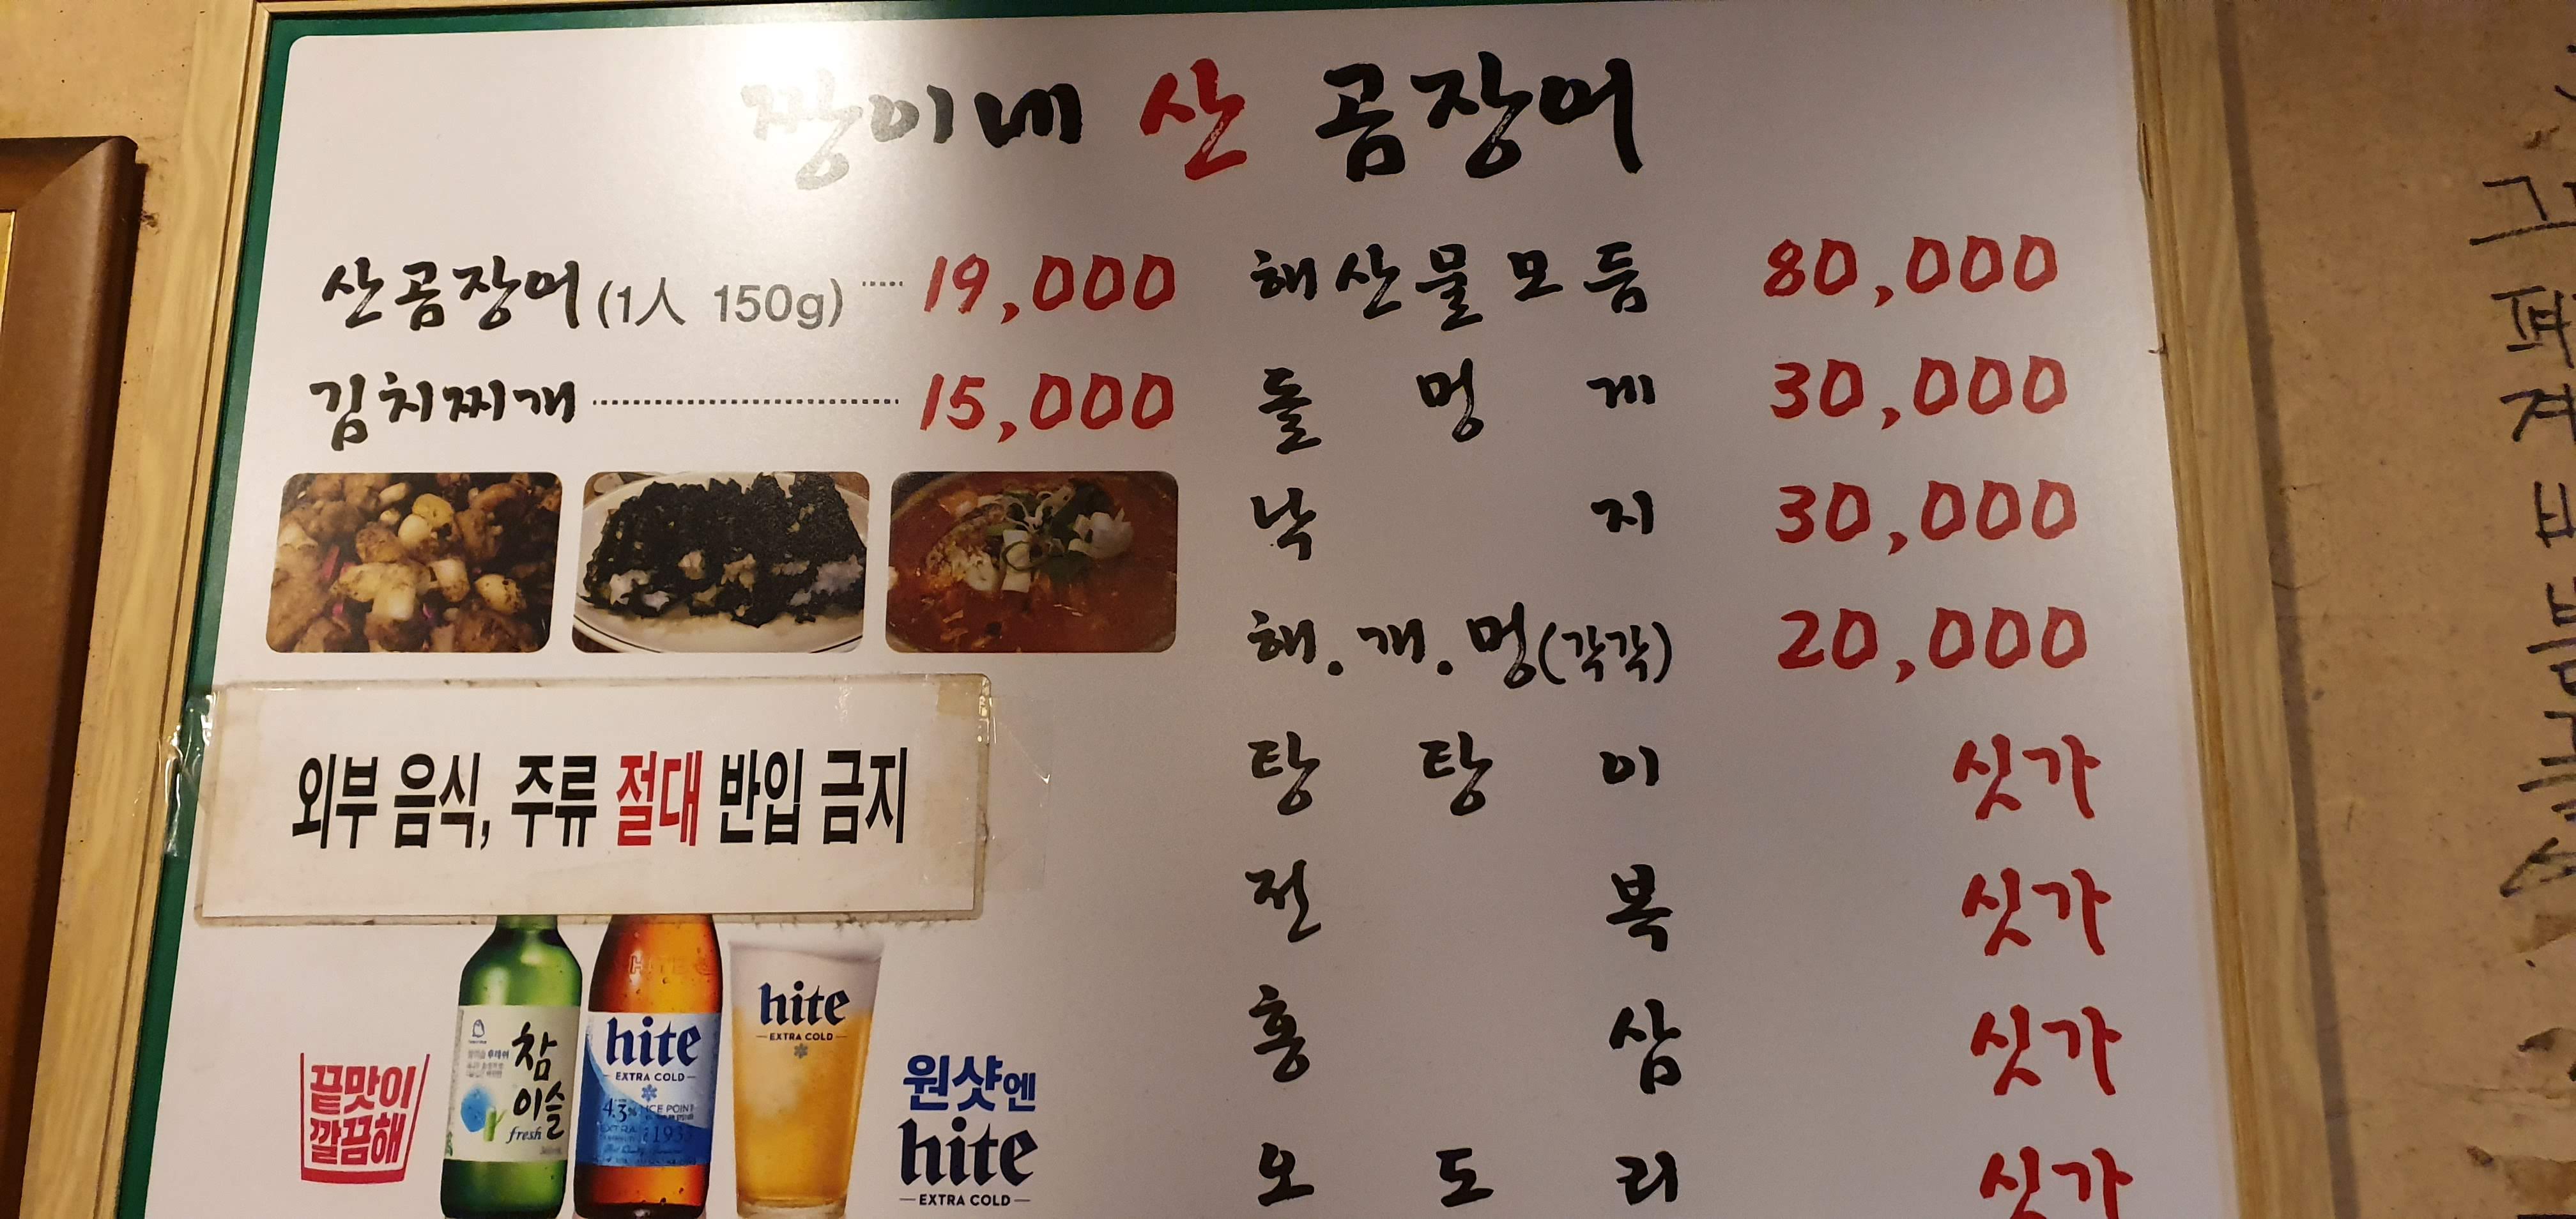 짱이네 산 곰장어
산곰장어 (1人 150g) 19,000
김치찌개 15,000
해산물모듬 80,000
돌멍게 30,000
낙지 30,000
해.개.멍(각각) 20,000
탕탕이 싯가
전복 싯가
홍삼 싯가
오도리 싯가
외부 음식, 주류 절대 반입 금지
끝맛이
깔끔해
참
이슬
fresh
hite
EXTRA COLD
4.3%
ICE POINT
EXTRA
1933
hite
EXTRA COLD
원샷엔
hite
EXTRA COLD